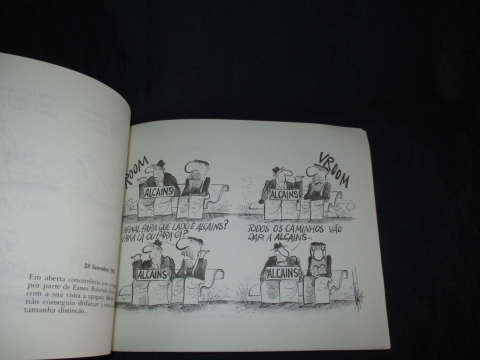 VROOM
ALCAINS
VROOM
ALCAINS
AFINAL PARA QUE LADO É ALCAINS?
PARA LÁ OU PARA CÁ?
ALCAINS
TODOS OS CAMINHOS VÃO
DAR A ALCAINS..
ALCAINS
28 Setembro
Em aberta concorrência com
por parte de Eanes,
com a sua visita a
não conseguiu disfarçar a
tamanha distinção..